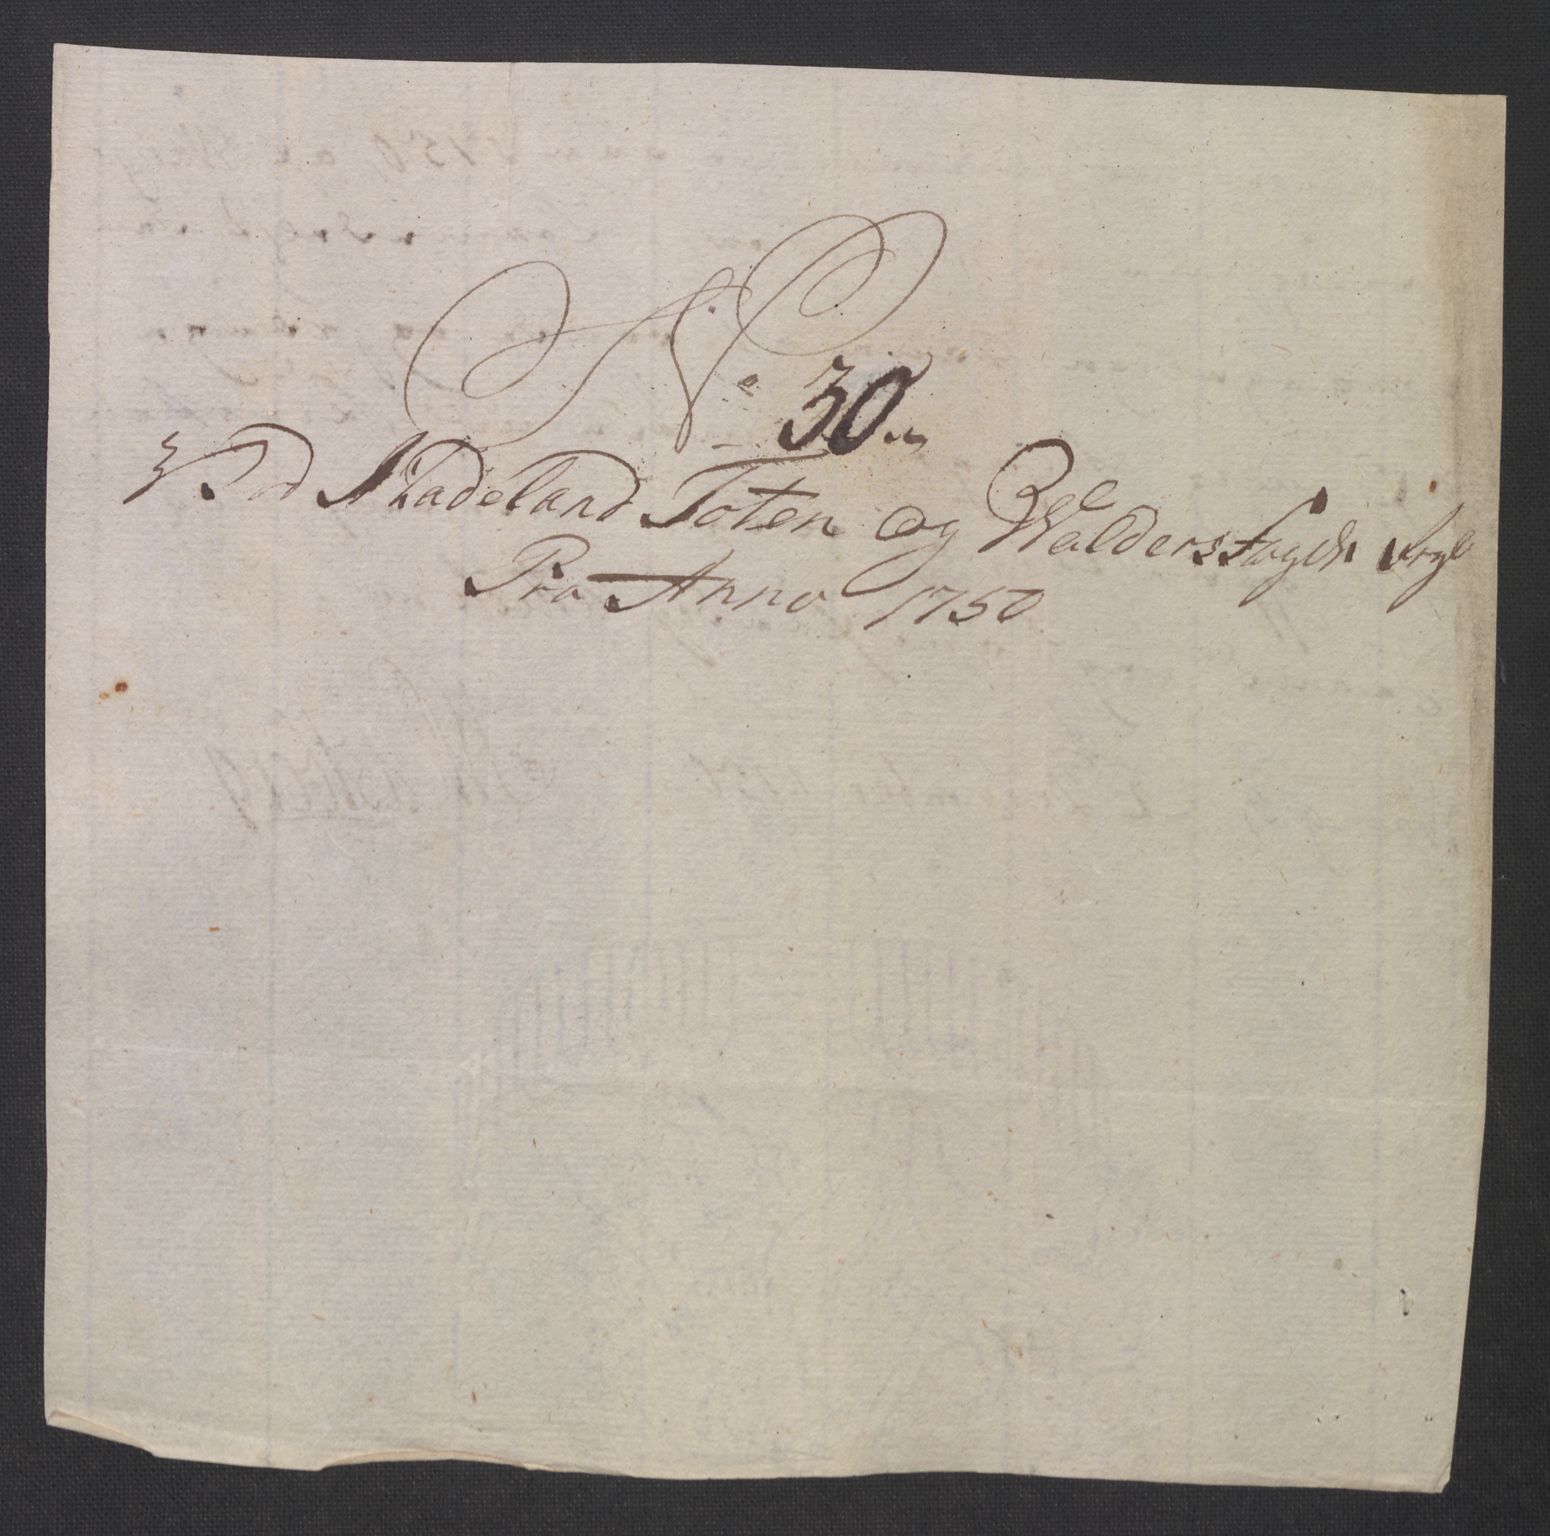 No 30
Til Hadeland Toten og Walders Fogderi Regb
Pro Anno 1750